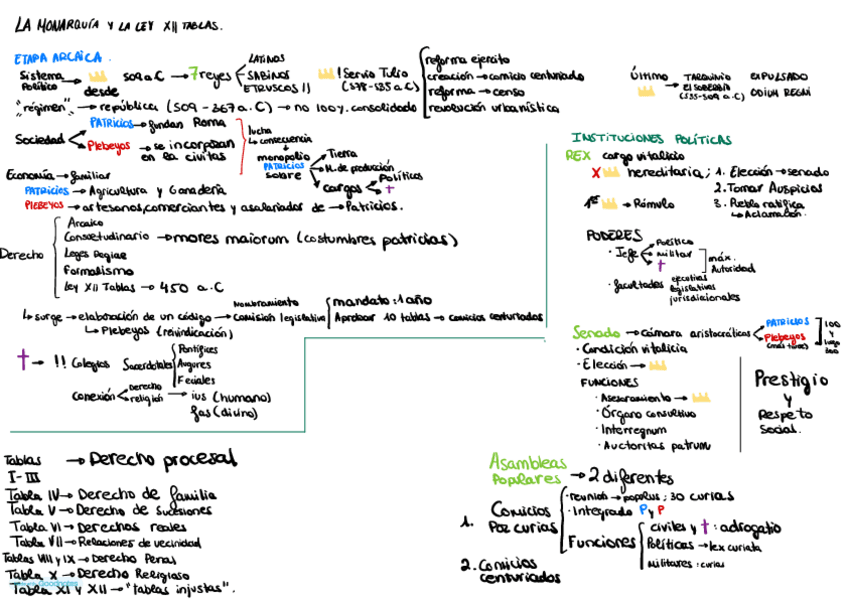 LA MONARQUÍA Y LA LEY XII TABLAS.
ETAPA ARCAICA.
Sistema Político → desde 509 a.C → 7 reyes
LATINOS
SABINOS
ETRUSCOS !!
! Servio Tulio
(578-535 a.C)
reforma ejercito
creación → comicio centuriado
reforma → censo
revolución urbanística
Último → TARQUINIO EL SOBERBIO
(535-509 a.C)
EXPULSADO
ODIUM REGNI
"régimen" → república (509 - 367 a.C) → no 100% consolidado
Sociedad
PATRICIOS → fundan Roma
Plebeyos → se incorporan en la civitas
lucha
↳ consecuencia
↓
monopolio
PATRICIOS
sobre
Tierra
M. de producción
cargos
Políticos
✝
Economía → familiar
PATRICIOS → Agricultura y Ganadería
PLEBEYOS → artesanos, comerciantes y asalariados de → Patricios.
Derecho
Arcaico
Consuetudinario → mores maiorum (costumbres patricias)
Leges Regiae
Formalismo
Ley XII Tablas → 450 a.C
↳ surge → elaboración de un código → Nombramiento
Comisión legislativa
mandato: 1 año
Aprobar 10 tablas → comicios centuriados
↳ Plebeyos (reivindicación)
✝ → !! Colegios Sacerdotales
Pontífices
Augures
Feciales
conexión
Derecho
religión
→ ius (humano)
fas (divino)
INSTITUCIONES POLÍTICAS
REX cargo vitalicio
X hereditaria ; 1. Elección → senado
2. Tomar Auspicios
3. Pueblo ratifica
↳ Aclamación.
1er → Rómulo
PODERES
· Jefe
Político
militar
✝
máx. Autoridad
· facultades
ejecutivas
legislativas
jurisdiccionales
Senado → cámara aristocrática
PATRICIOS
Plebeyos
100
y
luego
300
· Condición vitalicia
· Elección →
FUNCIONES
· Asesoramiento →
· Órgano consultivo
· Interregnum
· Auctoritas patrum
Prestigio
y
Respeto
social.
Tablas I-III → Derecho procesal
Tabla IV → Derecho de familia
Tabla V → Derecho de sucesiones
Tabla VI → Derechos reales
Tabla VII → Relaciones de vecindad
Tablas VIII y IX → Derecho Penal
Tabla X → Derecho Religioso
Tabla XI y XII → "tablas injustas".
Asambleas
POPULARES → 2 diferentes
1. Comicios Por curias
· reunión → populus ; 30 curias
· Integrado P y P
Funciones
civiles y ✝ : adrogatio
Políticas → lex curiata
militares : curias
2. Comicios centuriados